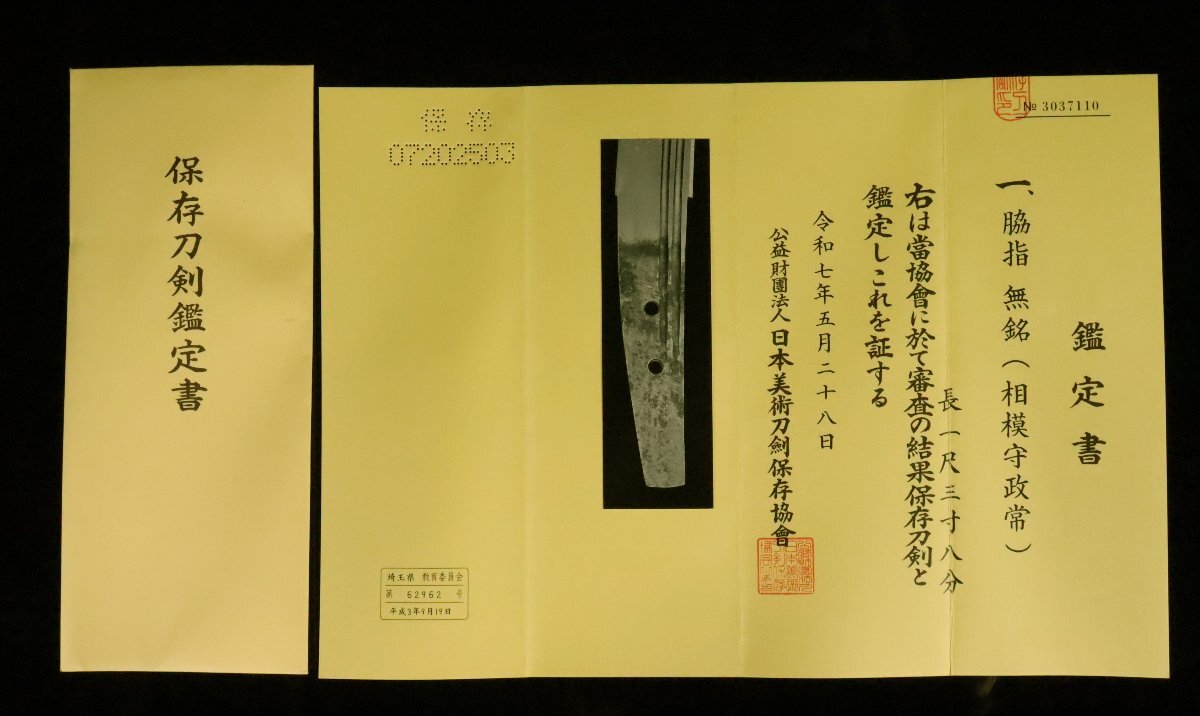 保存刀剣鑑定書
№ 3037110
鑑定書
一、脇指 無銘(相模守政常)
長一尺三寸八分
右は當協會に於て審査の結果保存刀剣と
鑑定しこれを証する
令和七年五月二十八日
公益財團法人 日本美術刀劍保存協會
保存
07202503
埼玉県 教育委員会
第 62962 号
平成3年9月19日